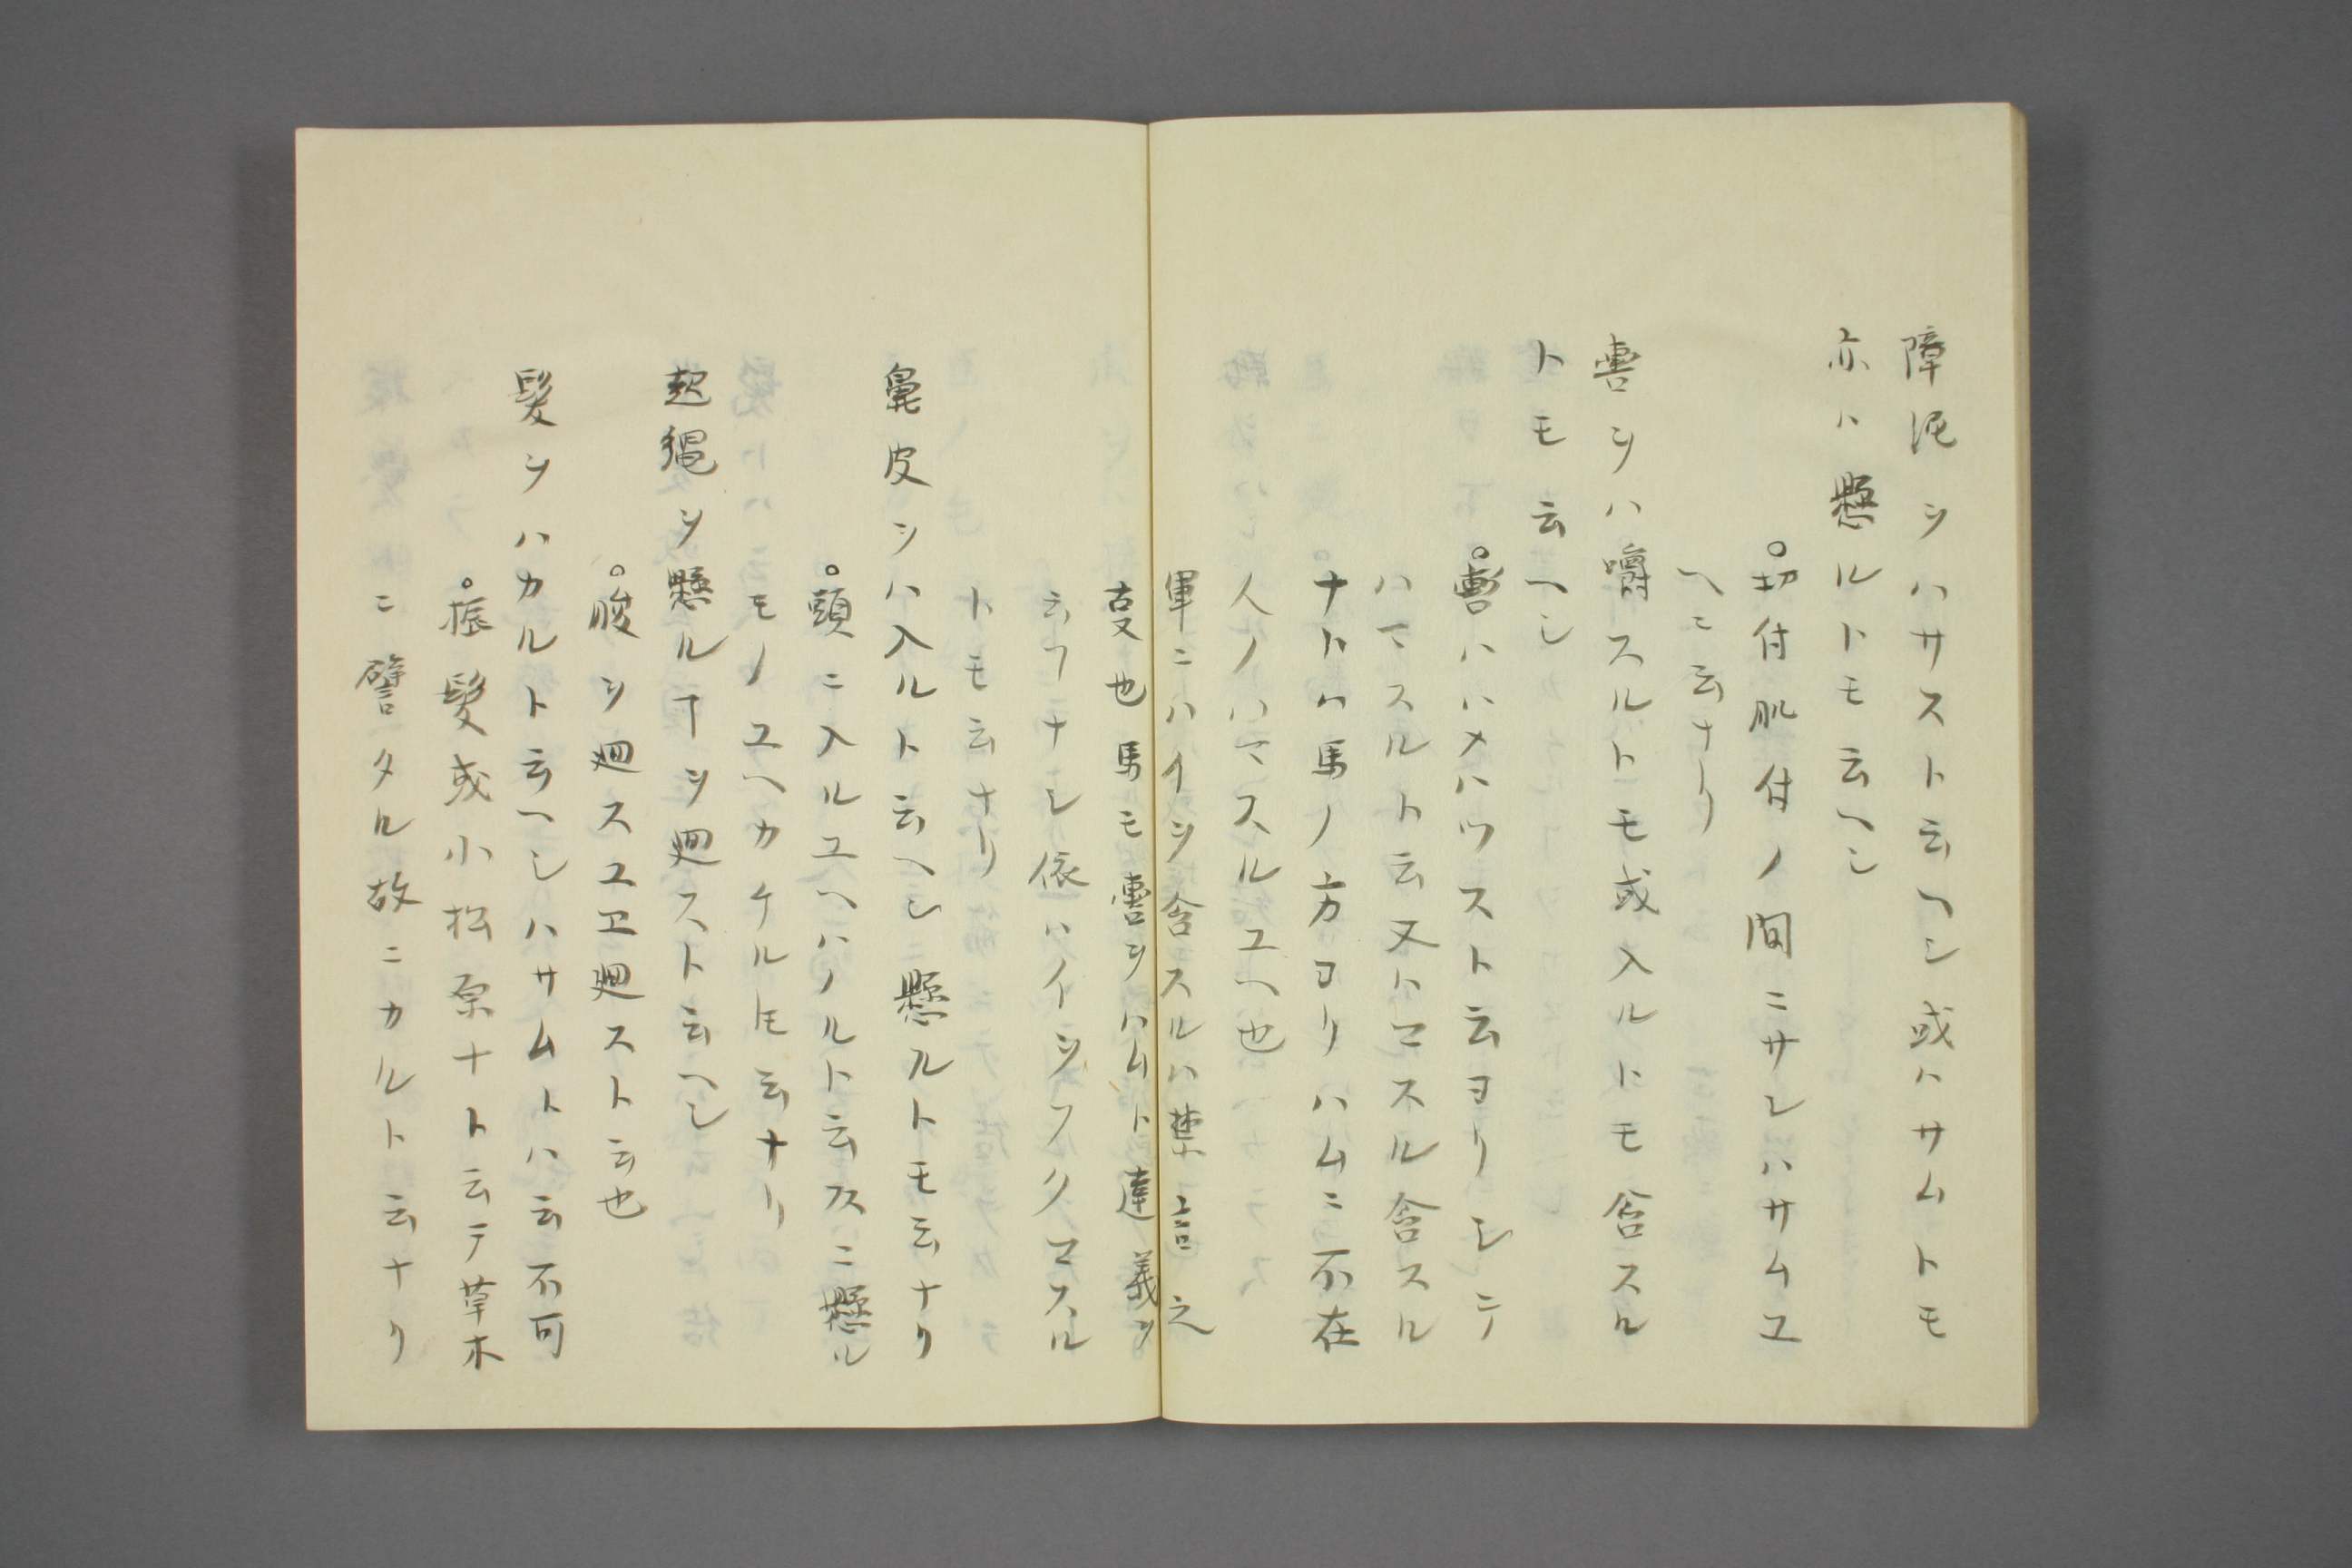 障泥ヲハサスト云ヘシ或ハサムトモ
亦ハ懸ルトモ云ヘシ
。切付肌付ノ間ニサシハサムユ
ヘニ云ナリ
轡ヲハ嚼スルトモ或入ルトモ含スル
トモ云ヘシ
。轡ハハメハツスト云ヨリシテ
ハマスルト云又ハマスル含スル
ナトハ馬ノ方ヨリハムニ不在
人ノハマスルユヘ也
軍ニハイヲ含スルハ禁言之
支也馬モ轡ヲハムト達義ヲ
云フナシ依ハイヲフクマスル
トモ云ナリ
鼻皮ヲハ入ルト云ヘシ懸ルトモ云ナリ
。頭ニ入ルユヘハノルト云又ニ懸ル
モノユヘカケルトモ云ナリ
起縄ヲ懸ル ヲ廻スト云ヘシ
。腹ヲ廻スユヱ廻スト云也
髪ヲハカルト云ヘシハサムトハ云不可
。振髪或小松原ナト云テ草木
ニ譬タル故ニカルト云ナリ